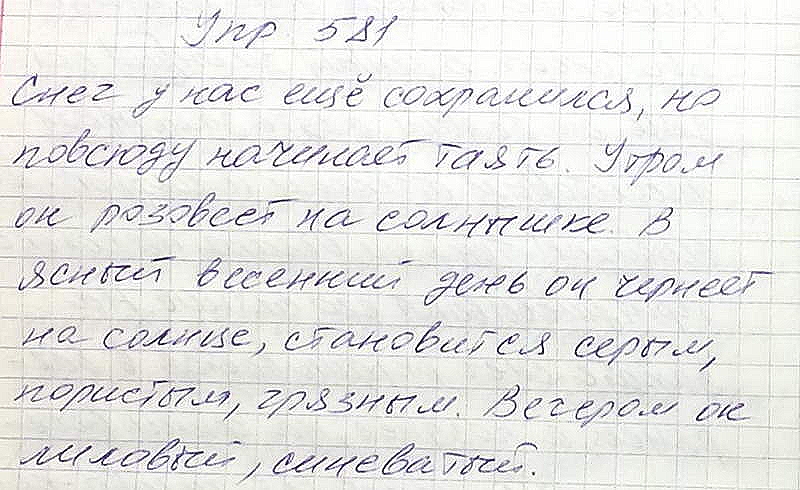 Упр 581
Снег у нас ещё сохранился, но
повсюду начинает таять. Утром
он розовеет на солнышке. В
ясный весенний день он чернеет
на солнце, становится серым,
пористым, грязным. Вечером он
лиловый, синеватый.